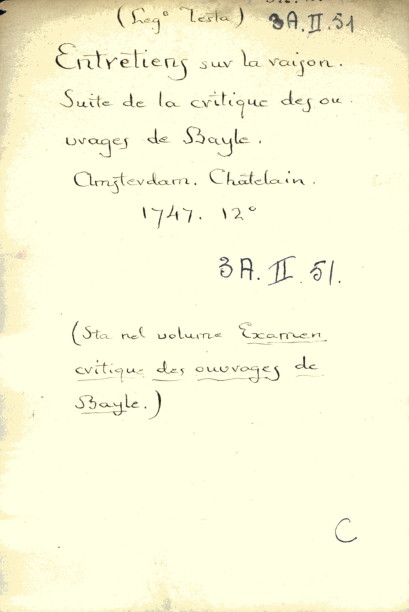 (Leg° Testa) 3A.II.51
Entretiens sur la raison.
Suite de la critique des ou
uvrages de Bayle.
Amsterdam. Châtelain.
1747. 12°
3A. II. 51.
(Sta nel volume Examen
critique des ouuvrages de
Bayle.)
C